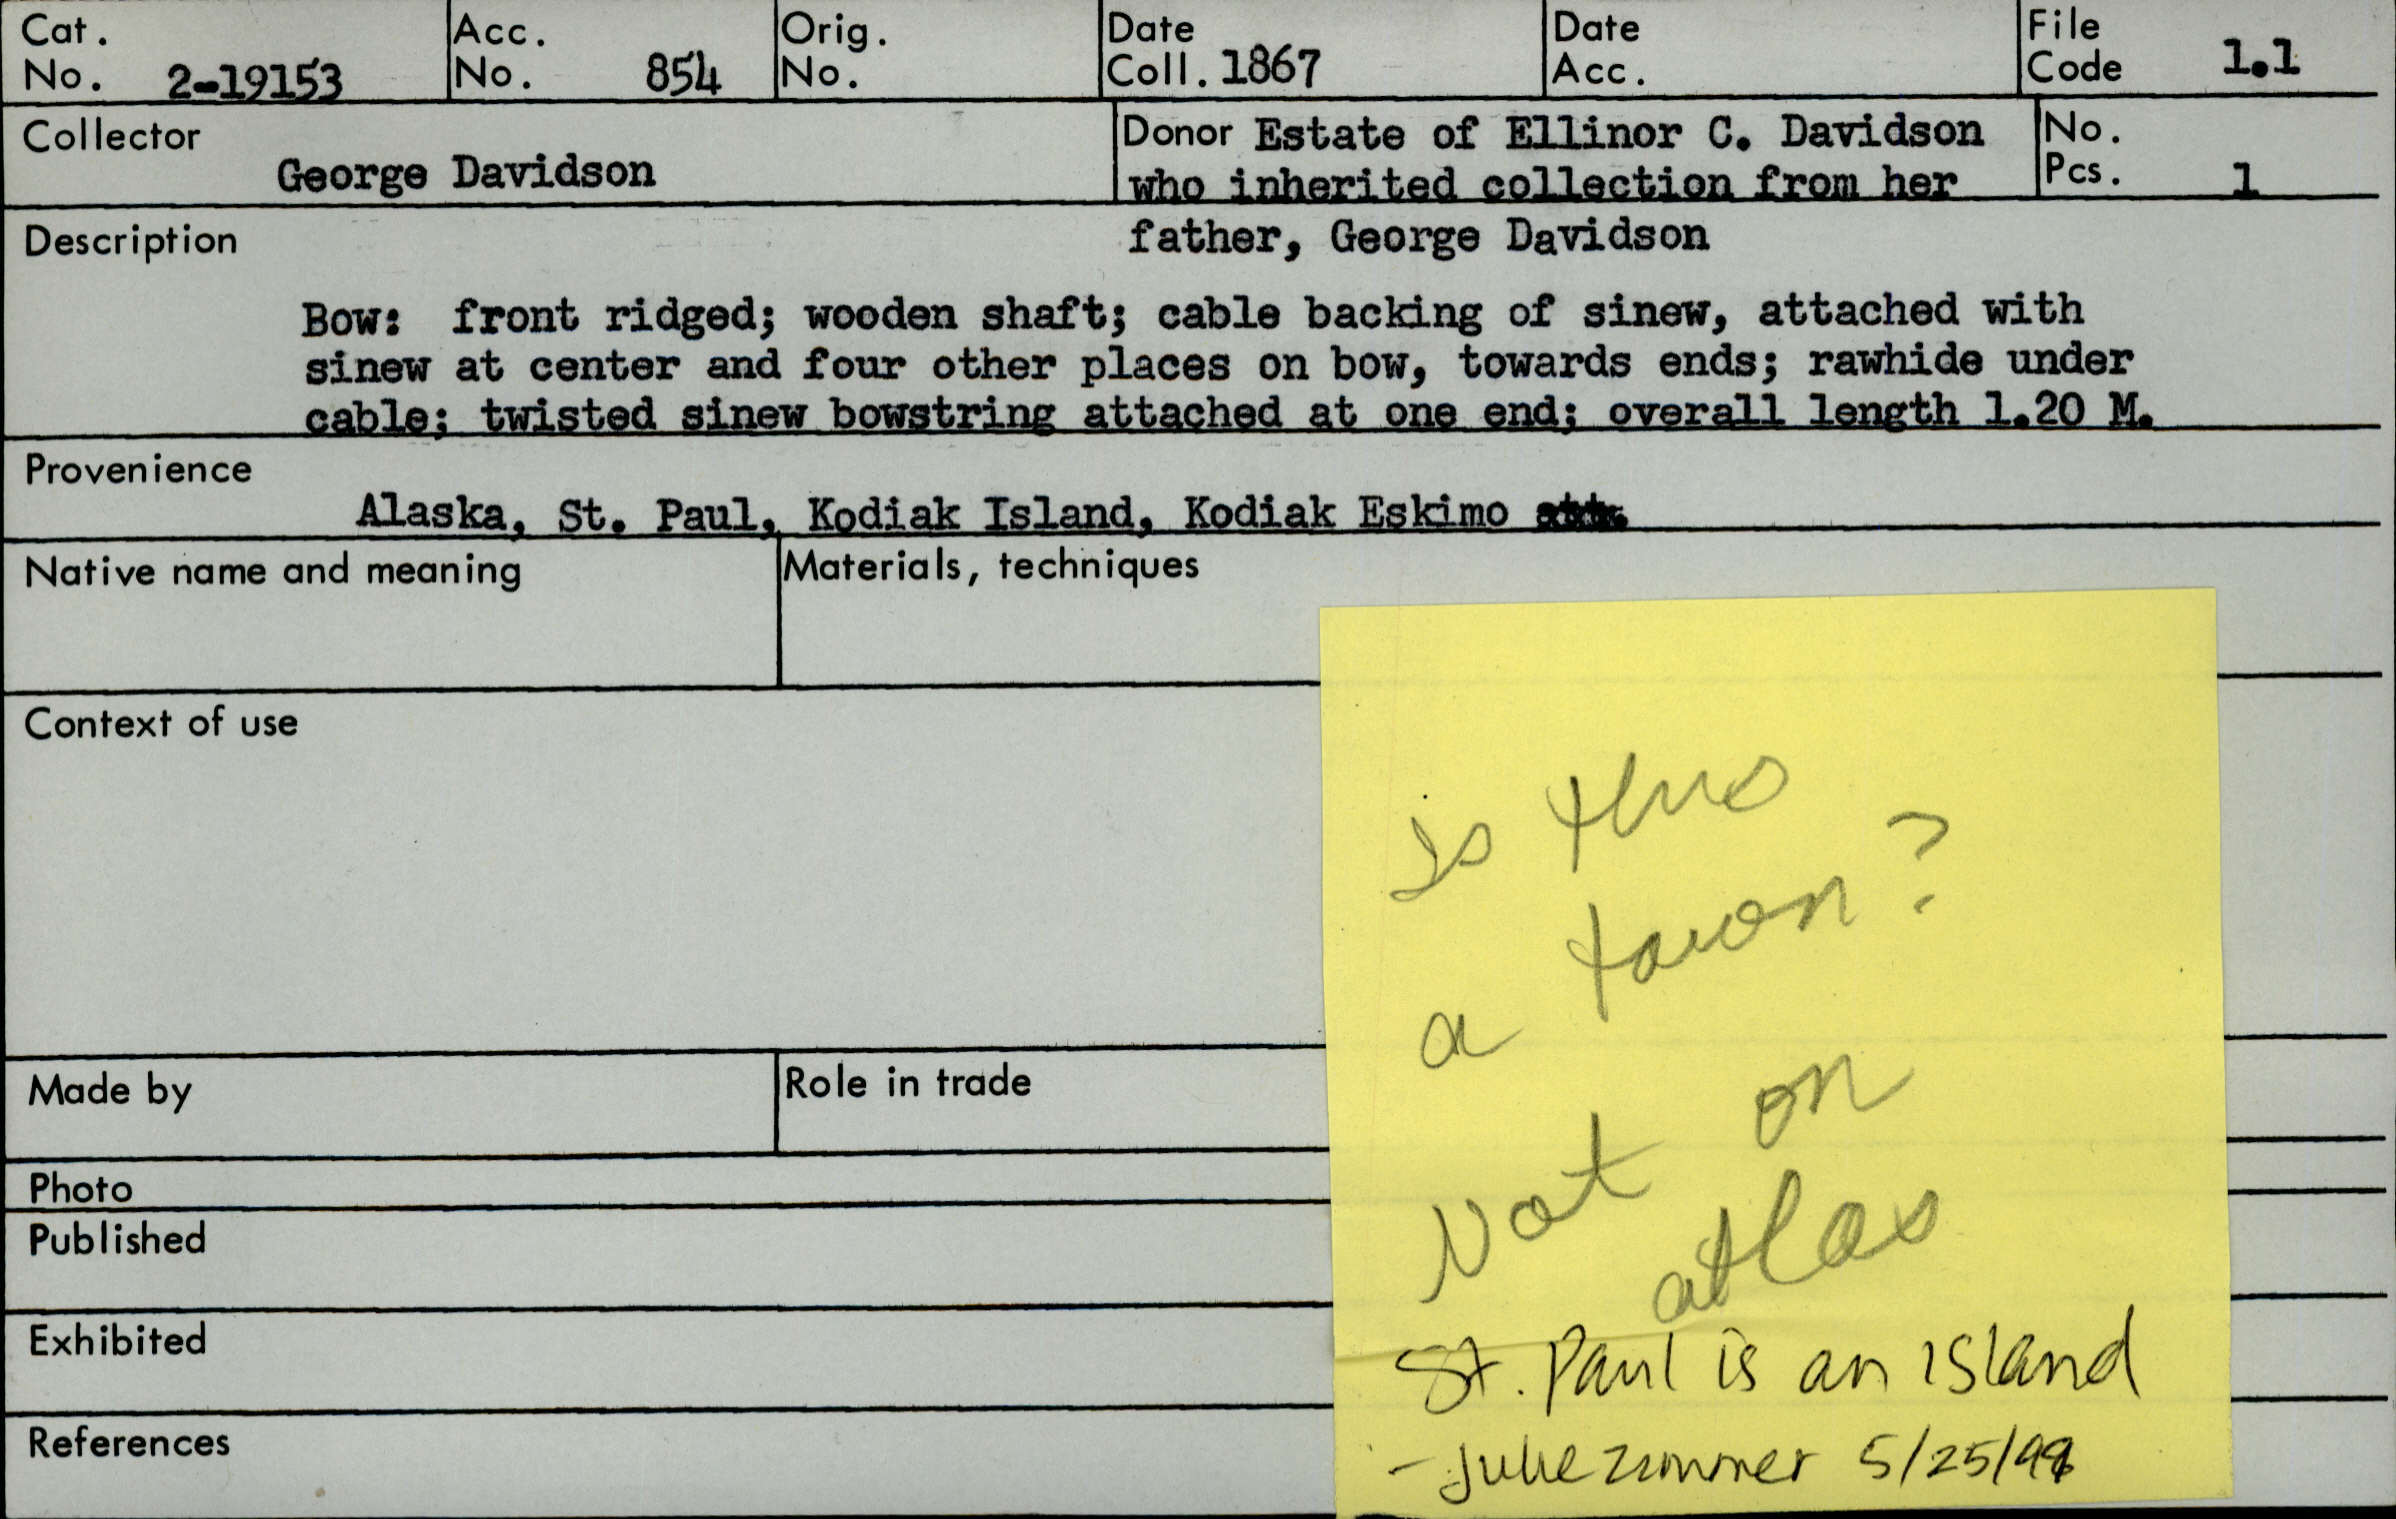 Cat. No. 2-19153
Acc. No. 854
Orig. No.
Date Coll. 1867
Date Acc.
File Code 1.1
Collector
George Davidson
Donor Estate of Ellinor C. Davidson
who inherited collection from her
father, George Davidson
No. Pcs. 1
Description
Bow: front ridged; wooden shaft; cable backing of sinew, attached with
sinew at center and four other places on bow, towards ends; rawhide under
cable; twisted sinew bowstring attached at one end; overall length 1.20 M.
Provenience
Alaska, St. Paul, Kodiak Island, Kodiak Eskimo
Native name and meaning
Materials, techniques
Context of use
Made by
Role in trade
Photo
Published
Exhibited
References
Is this
a town?
Not on
atlas
St. Paul is an island
- Julie Zimmer 5/25/99